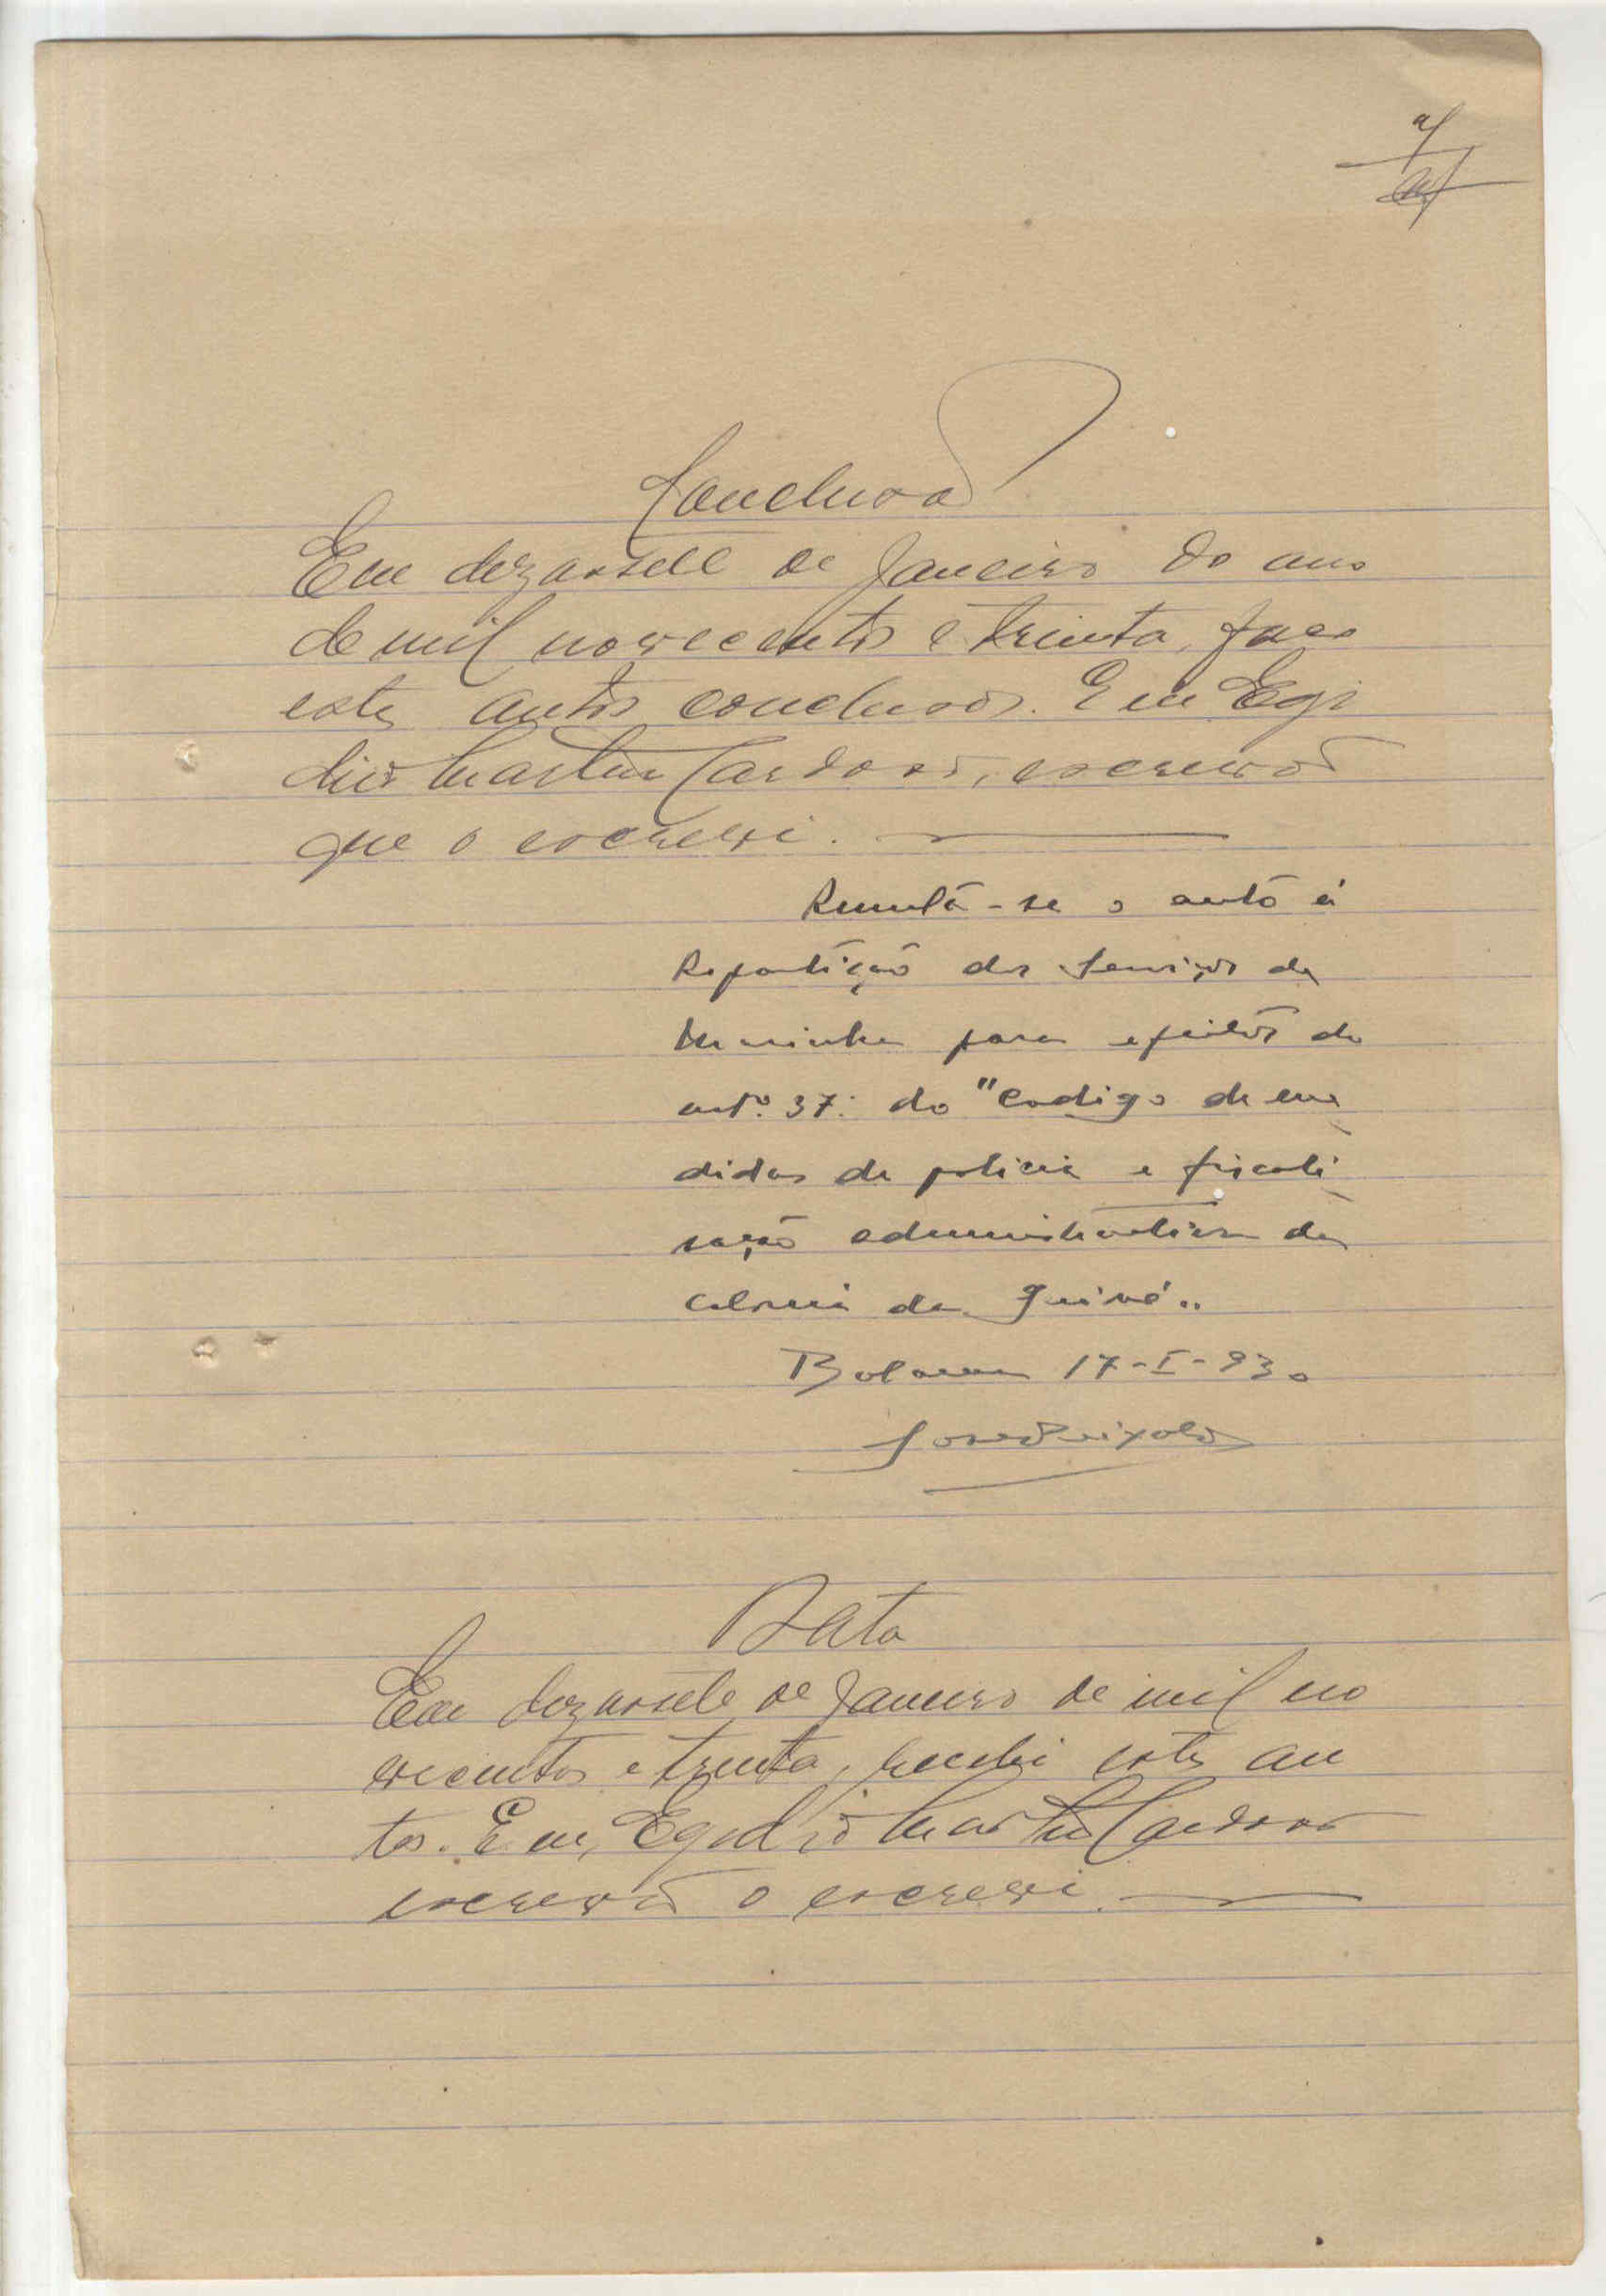 Conclusão
Em dezassete de Janeiro do ano
de mil novecentos e trinta, faço
estes autos conclusos. E eu Egi
dio Martins Cardoso, escrivão
que o escrevi.
Remeta-se o auto á
Repartição dos Serviços de
Marinha para efeitos do
artº. 37º do "Codigo de me
didas de policia e fiscali
sação administrativa da
Colonia da Guiné".
Bolama 17-I-930
José Peixoto
Data
Em dezassete de Janeiro de mil no
vecentos e trinta, recebi estes au
tos. E eu, Egidio Martins Cardoso
escrivão o escrevi.